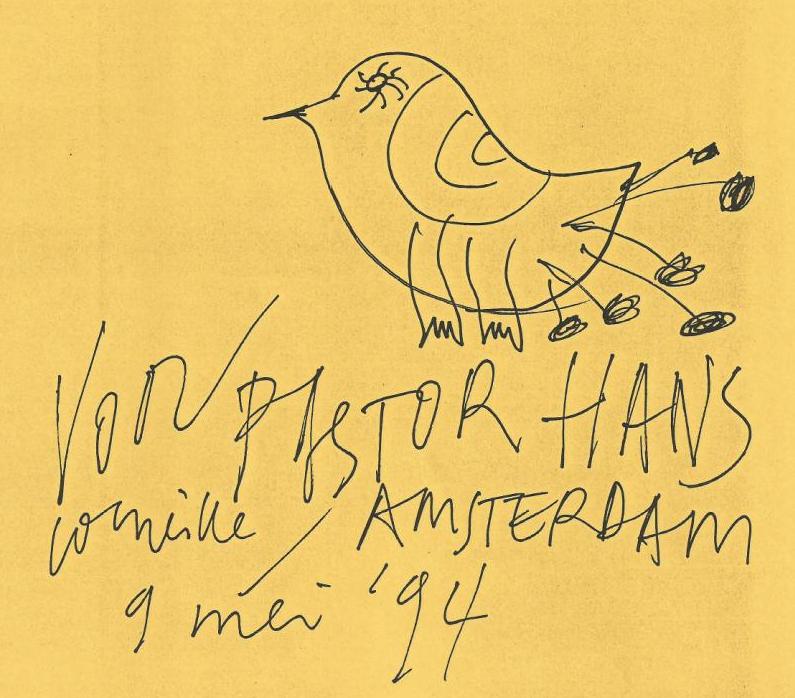 VOOR PASTOR HANS
corneille AMSTERDAM
9 mei '94